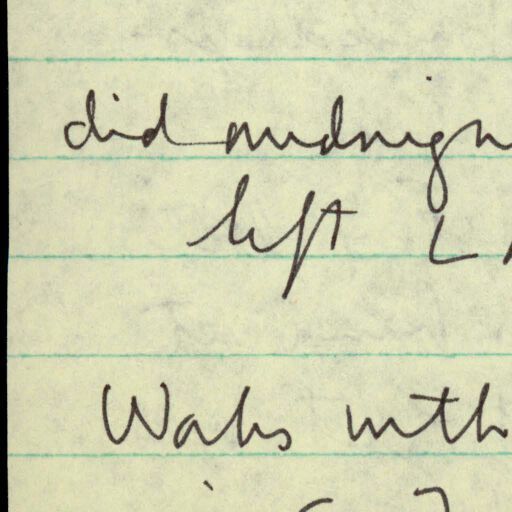 did midnigh
left L
Walks with